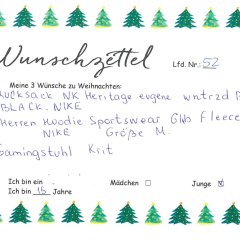 Wunschzettel Lfd. Nr.: 52
Meine 3 Wünsche zu Weihnachten:
Rucksack NK Heritage eugene wntrzd
BLACK. NIKE
Herren Hoodie Sportswear Club Fleece
NIKE Größe M.
Gamingstuhl Krit
Ich bin ein : Mädchen Junge
Ich bin 15 Jahre